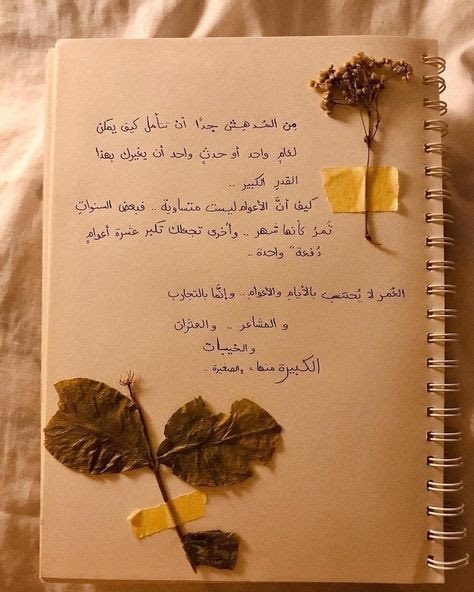 مِن المُدهِش جدًا أن تتأمل كيف يمكن
لعامٍ واحد أو حدثٍ واحد أن يغيرك بهذا
القدرِ الكبير ..
كيف أنَّ الأعوام ليست متساوية .. فبعض السنواتِ
تَمرُ كأنها شهر .. وأُخرى تجعلك تكبر عشرة أعوامٍ
دُفعةً واحدة ..
العُمر لا يُحتسب بالأيامِ والأعوام .. وإنَّما بالتجارب
و المشاعر .. والعثران
والخيبات
الكبيرة منها، والصغيرة ..